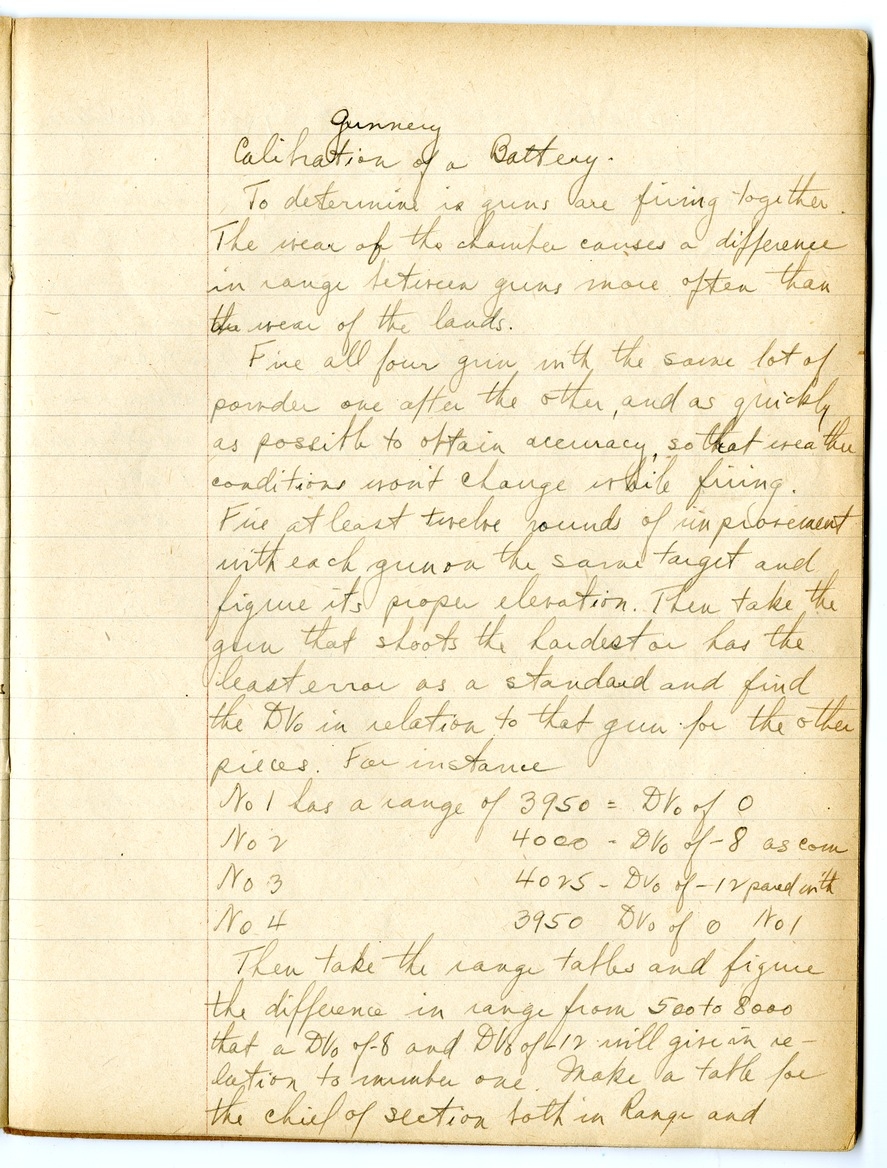 Gunnery
Calibration of a Battery.
To determine is guns are firing together.
The wear of the chamber causes a difference
in range between guns more often than
the wear of the lands.
Fire all four gun with the same lot of
powder one after the other, and as quickly
as possible to obtain accuracy, so that weather
conditions won't change while firing.
Fire at least twelve rounds of improvement
with each gun on the same target and
figure its proper elevation. Then take the
gun that shoots the hardest or has the
least error as a standard and find
the DVo in relation to that gun for the other
pieces. For instance
No 1 has a range of 3950 = DVo of 0
No 2 4000 - DVo of -8 as com
No 3 4025 - DVo of -12 pared with
No 4 3950 DVo of 0 No 1
Then take the range tables and figure
the difference in range from 500 to 8000
that a DVo of -8 and DVo of -12 will give in re-
lation to number one. Make a table for
the chief of section both in Range and